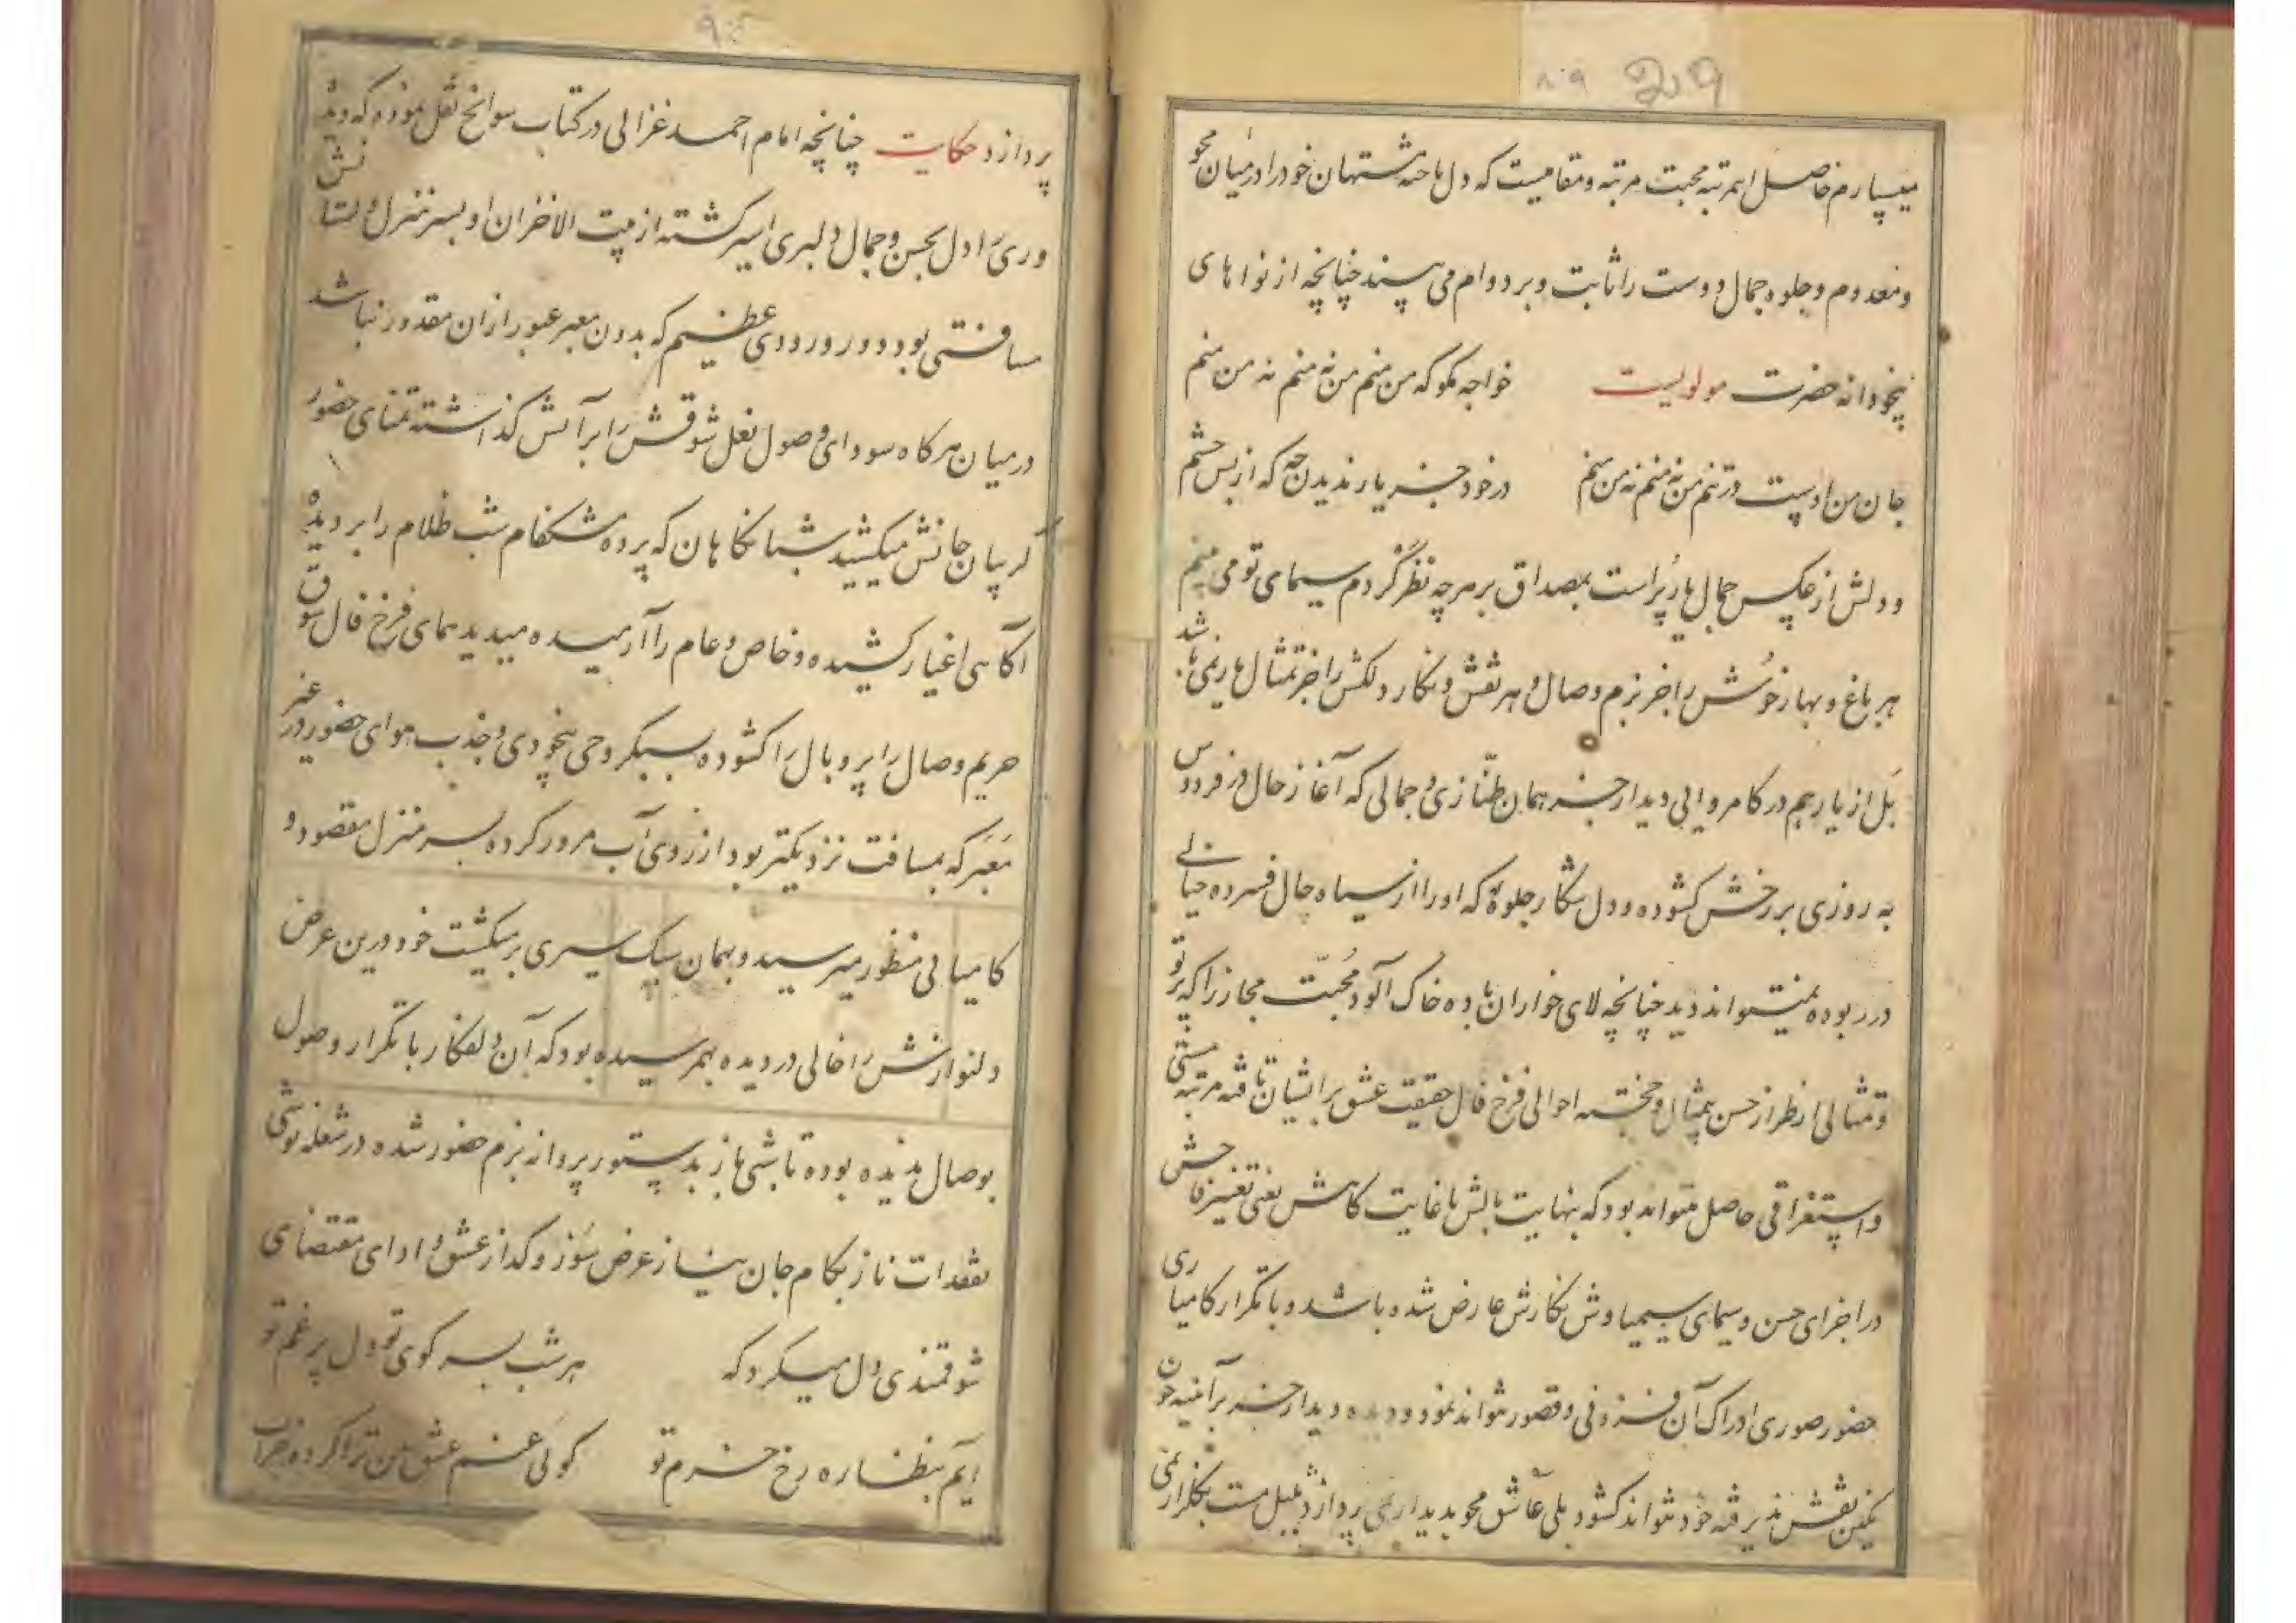 ۲۰۹ ۸۰۹
میسپارم حاصل اینمرتبه محبت مرتبه و مقامیست که دل باخته مشتهان خود را در میان محو
و معدوم و جلوه جمال دوست را ثابت و بر دوام می بیند چنانچه از نواهای
بیخودانه حضرت مولویست خواجه مگو که من منم من نه منم نه من منم
جان من اوست در تنم من نه منم نه من منم در خود جز یار ندیدن چه که از بس چشم
و دلش از عکس جمال یار پر است بمصداق بر هرچه نظر کردم سیمای تو می بینم
هر باغ و بهار خوش را جز بزم وصال و هر نقش و نگار دلکش را جز تمثال یار نمی باشد
بل از یار هم در کامروایی دیدار جز همان طنازی و جمالی که آغاز حال در فردوس
به روزی بر رخش کشوده و دل شکار جلوهٔ که او را از سیاه چال فسرده حیاتی
در ربوده نمیتواند دید چنانچه لای خواران باده خاک آلود محبت مجاز را که پرتو
و تمثالی از طراز حسن بیمثال و خجسته احوالی فرخ فال حقیقت عشق بر ایشان تافته مرتبه مستی
و استغراقی حاصل میتواند بود که بنهایت بالش یا غایت کاهش یعنی تغییر فاحش
در اجزای حسن و سیمای سیمیاوش نگارش عارض شده باشد و با تکرار کامیاری
حضور صوری ادراک آن فزونی و قصور نتواند نمود و دیده دیدار جز بر آئینه چون
نگین نقش پذیرفته خود نتواند کشود بلی عاشق محو بدیدار می پردازد بلبل مست بگلزار نمی
پردازد حکایت چنانچه امام احمد غزالی در کتاب سوانح نقل نموده که دیده
وری را دل بحسن و جمال دلبری اسیر گشته از بیت الاحزان او بسر منزل دلستانش
مسافتی بود و در و رودی عظیم که بدون معبر عبور از آن مقدور نباشد
در میان هرگاه سودای وصول نعل شوقش را بر آتش گذاشته تمنای حضور
گریبان جانش میکشید شبانگاهان که پرده مشکفام شب ظلام را بر دیدهٔ
آگاهی اغیار کشیده و خاص و عام را آرمیده میدید همای فرخ فال شوق
حریم وصال را پر و بال را کشوده بسبکروحی بیخودی و جذب هوای حضور در غیر
معبر که بمسافت نزدیکتر بود از روی آب مرور کرده بسر منزل مقصود و
کامیابی منظور میرسید و بهمان سبک سیری برمیگشت خود درین عرض
دلنوازش را خالی در دیده بهمرسیده بود که آن دلفکار با تکرار وصول
بوصال ندیده بوده تا شبی باز بدستور پروانه بزم حضور شده در شعله نوشی
نقدات ناز بکام جان نیاز عرض سوز و گداز عشق و ادای مقتضای
شوقمندی دل میکرد که هر شب بسر کوی تو دل پر غم تو
آیم بنظاره رخ خرم تو گوئی غم عشق من ترا کرده خراب